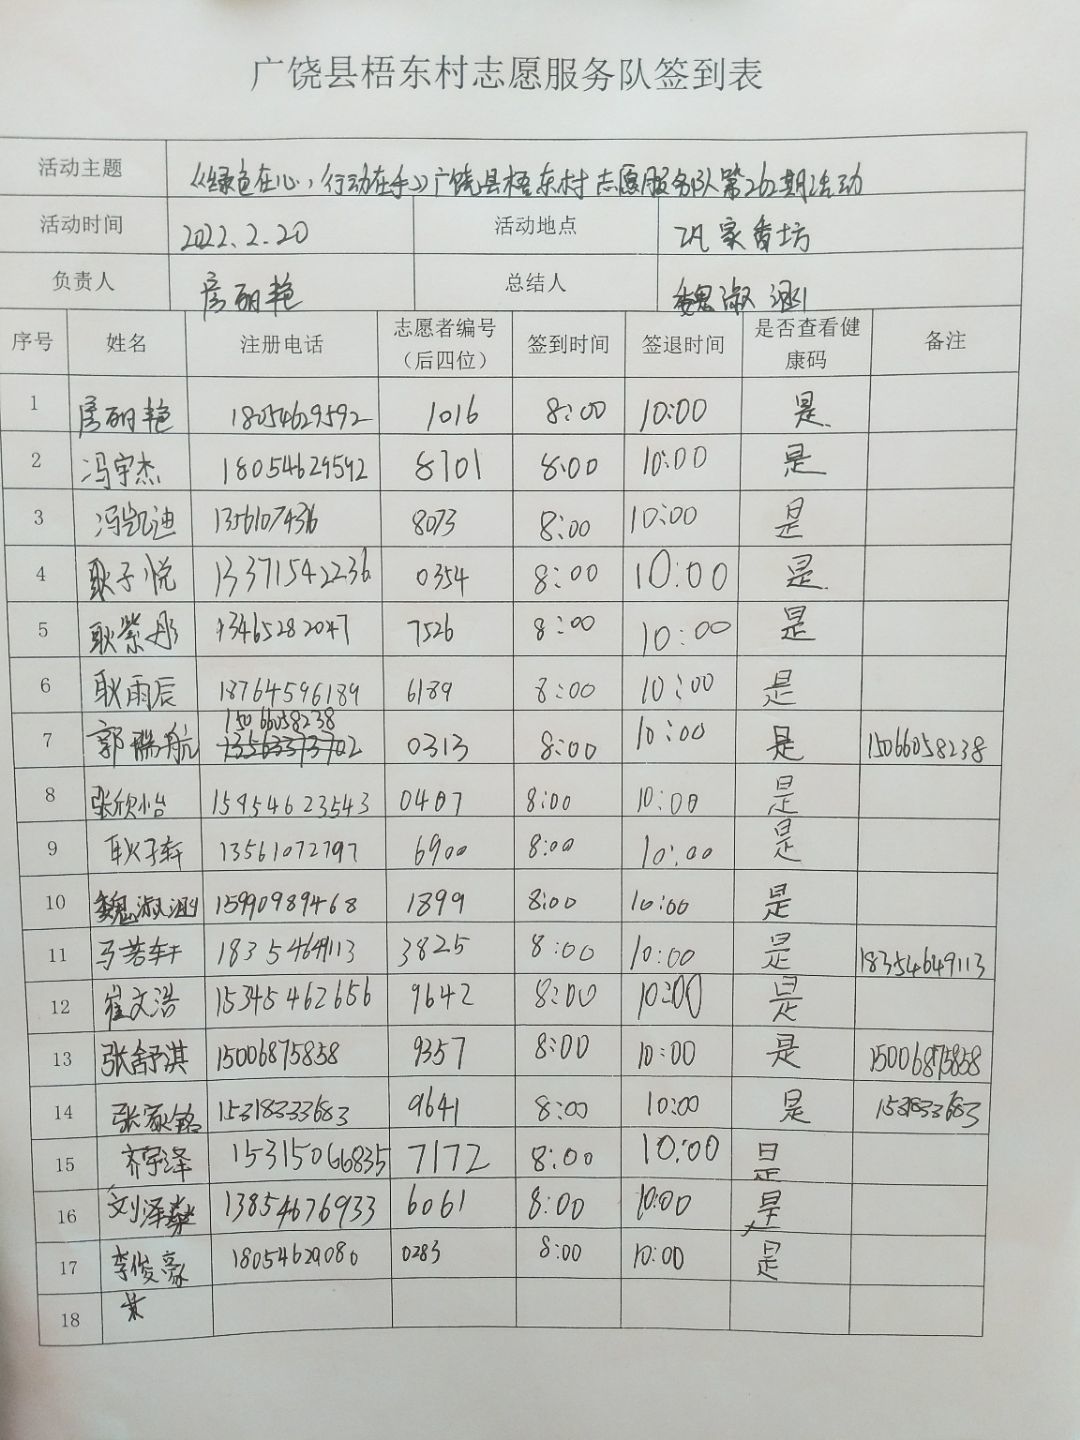 广饶县梧东村志愿服务队签到表
活动主题 《绿色在心,行动在手》广饶县梧东村志愿服务队第262期活动
活动时间 2022.2.20 活动地点 巩家香坊
负责人 房丽艳 总结人 魏淑渊
序号 姓名 注册电话 志愿者编号(后四位) 签到时间 签退时间 是否查看健康码 备注
1 房丽艳 18054629592 1016 8:00 10:00 是
2 冯宇杰 18054629592 8701 8:00 10:00 是
3 冯凯迪 1356107436 8073 8:00 10:00 是
4 耿子悦 13371542236 0354 8:00 10:00 是
5 耿紫彤 13465282047 7526 8:00 10:00 是
6 耿雨辰 18764596189 6189 8:00 10:00 是
7 郭瑞航 15066058238 13563373702 0313 8:00 10:00 是 15066058238
8 张欣怡 15954623543 0407 8:00 10:00 是
9 耿子轩 13561072797 6900 8:00 10:00 是
10 魏淑渊 15990989468 1899 8:00 10:00 是
11 马若轩 18354649113 3825 8:00 10:00 是 18354649113
12 崔文浩 15345462656 9642 8:00 10:00 是
13 张舒淇 15006875858 9357 8:00 10:00 是 15006875858
14 张家铭 15318333683 9641 8:00 10:00 是
15 齐宇泽 15315066835 7172 8:00 10:00 是
16 刘泽 13854676933 6061 8:00 10:00 是
17 李俊豪 18054629080 0283 8:00 10:00 是
18